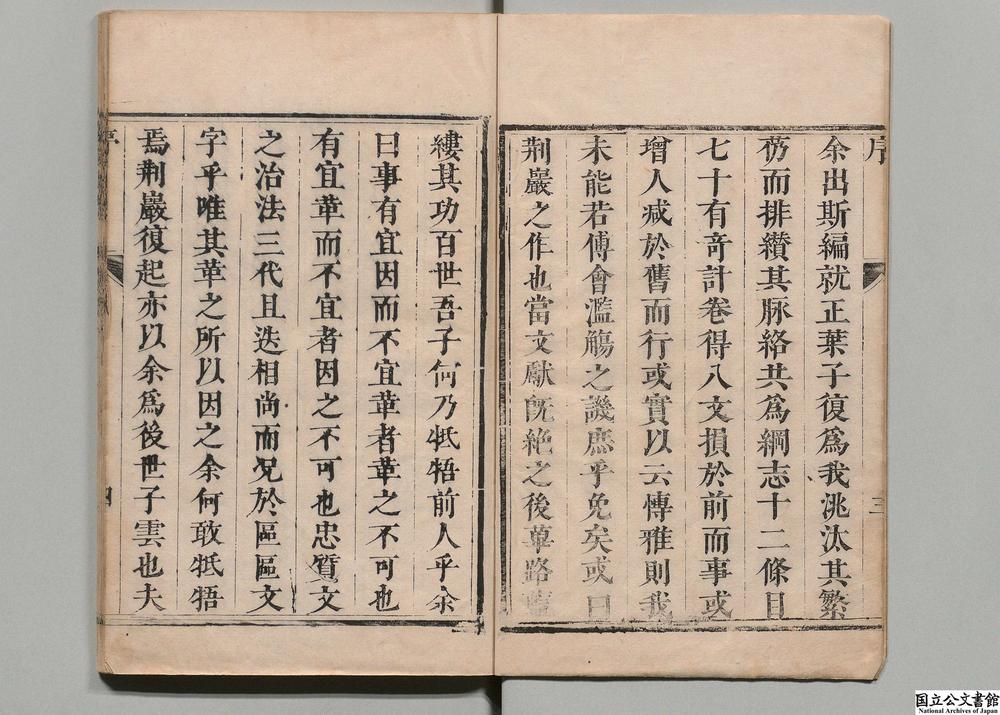 序
三
余出斯編就正葉子復爲我洮汰其繁
蕪而排纉其脉絡共爲綱志十二條目
七十有竒計卷得八文損於前而事或
增人减於舊而行或實以云慱雅則我
未能若傅會濫觴之譏庶乎免矣或曰
荆巖之作也當文獻旣絶之後蓽路藍
縷其功百世吾子何乃牴牾前人乎余
曰事有宜因而不宜革者革之不可也
有宜革而不宜者因之不可也忠質文
之治法三代且迭相尚而况於區區文
字乎唯其革之所以因之余何敢牴牾
焉荆巖復起亦以余爲後世子雲也夫
序
四
国立公文書館
National Archives of Japan